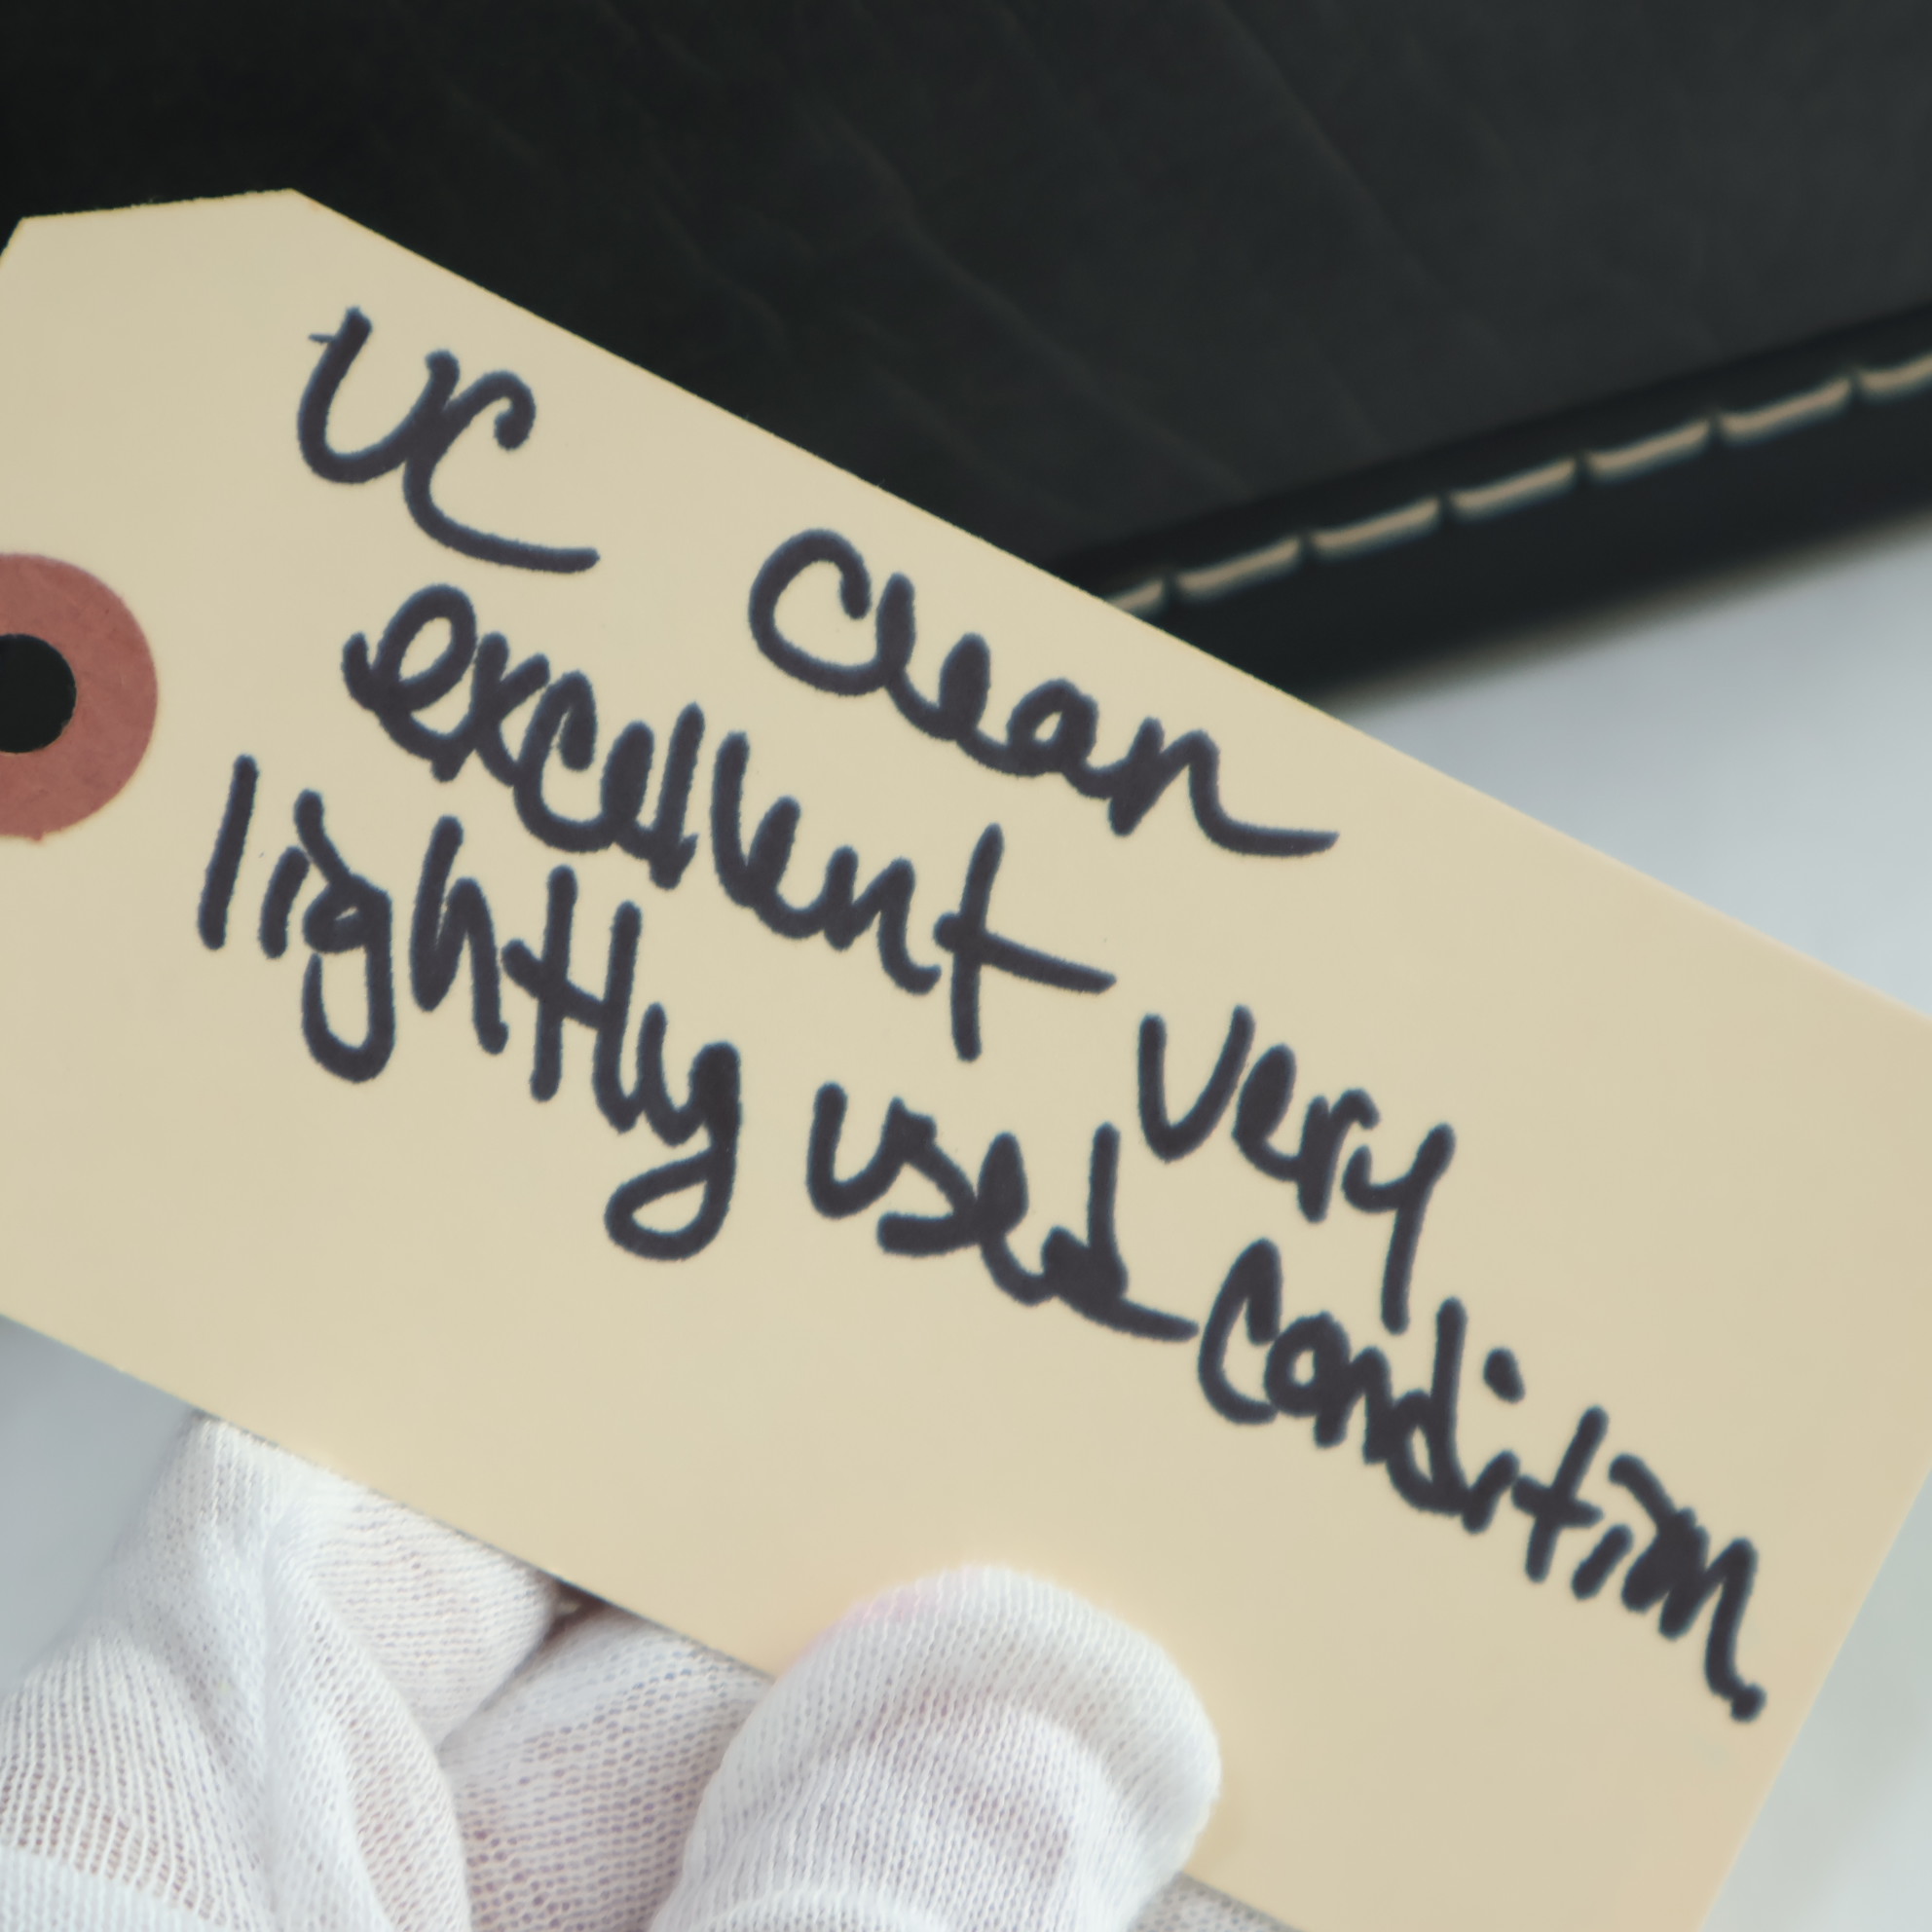 UC Clean
excellent very
lightly used condition